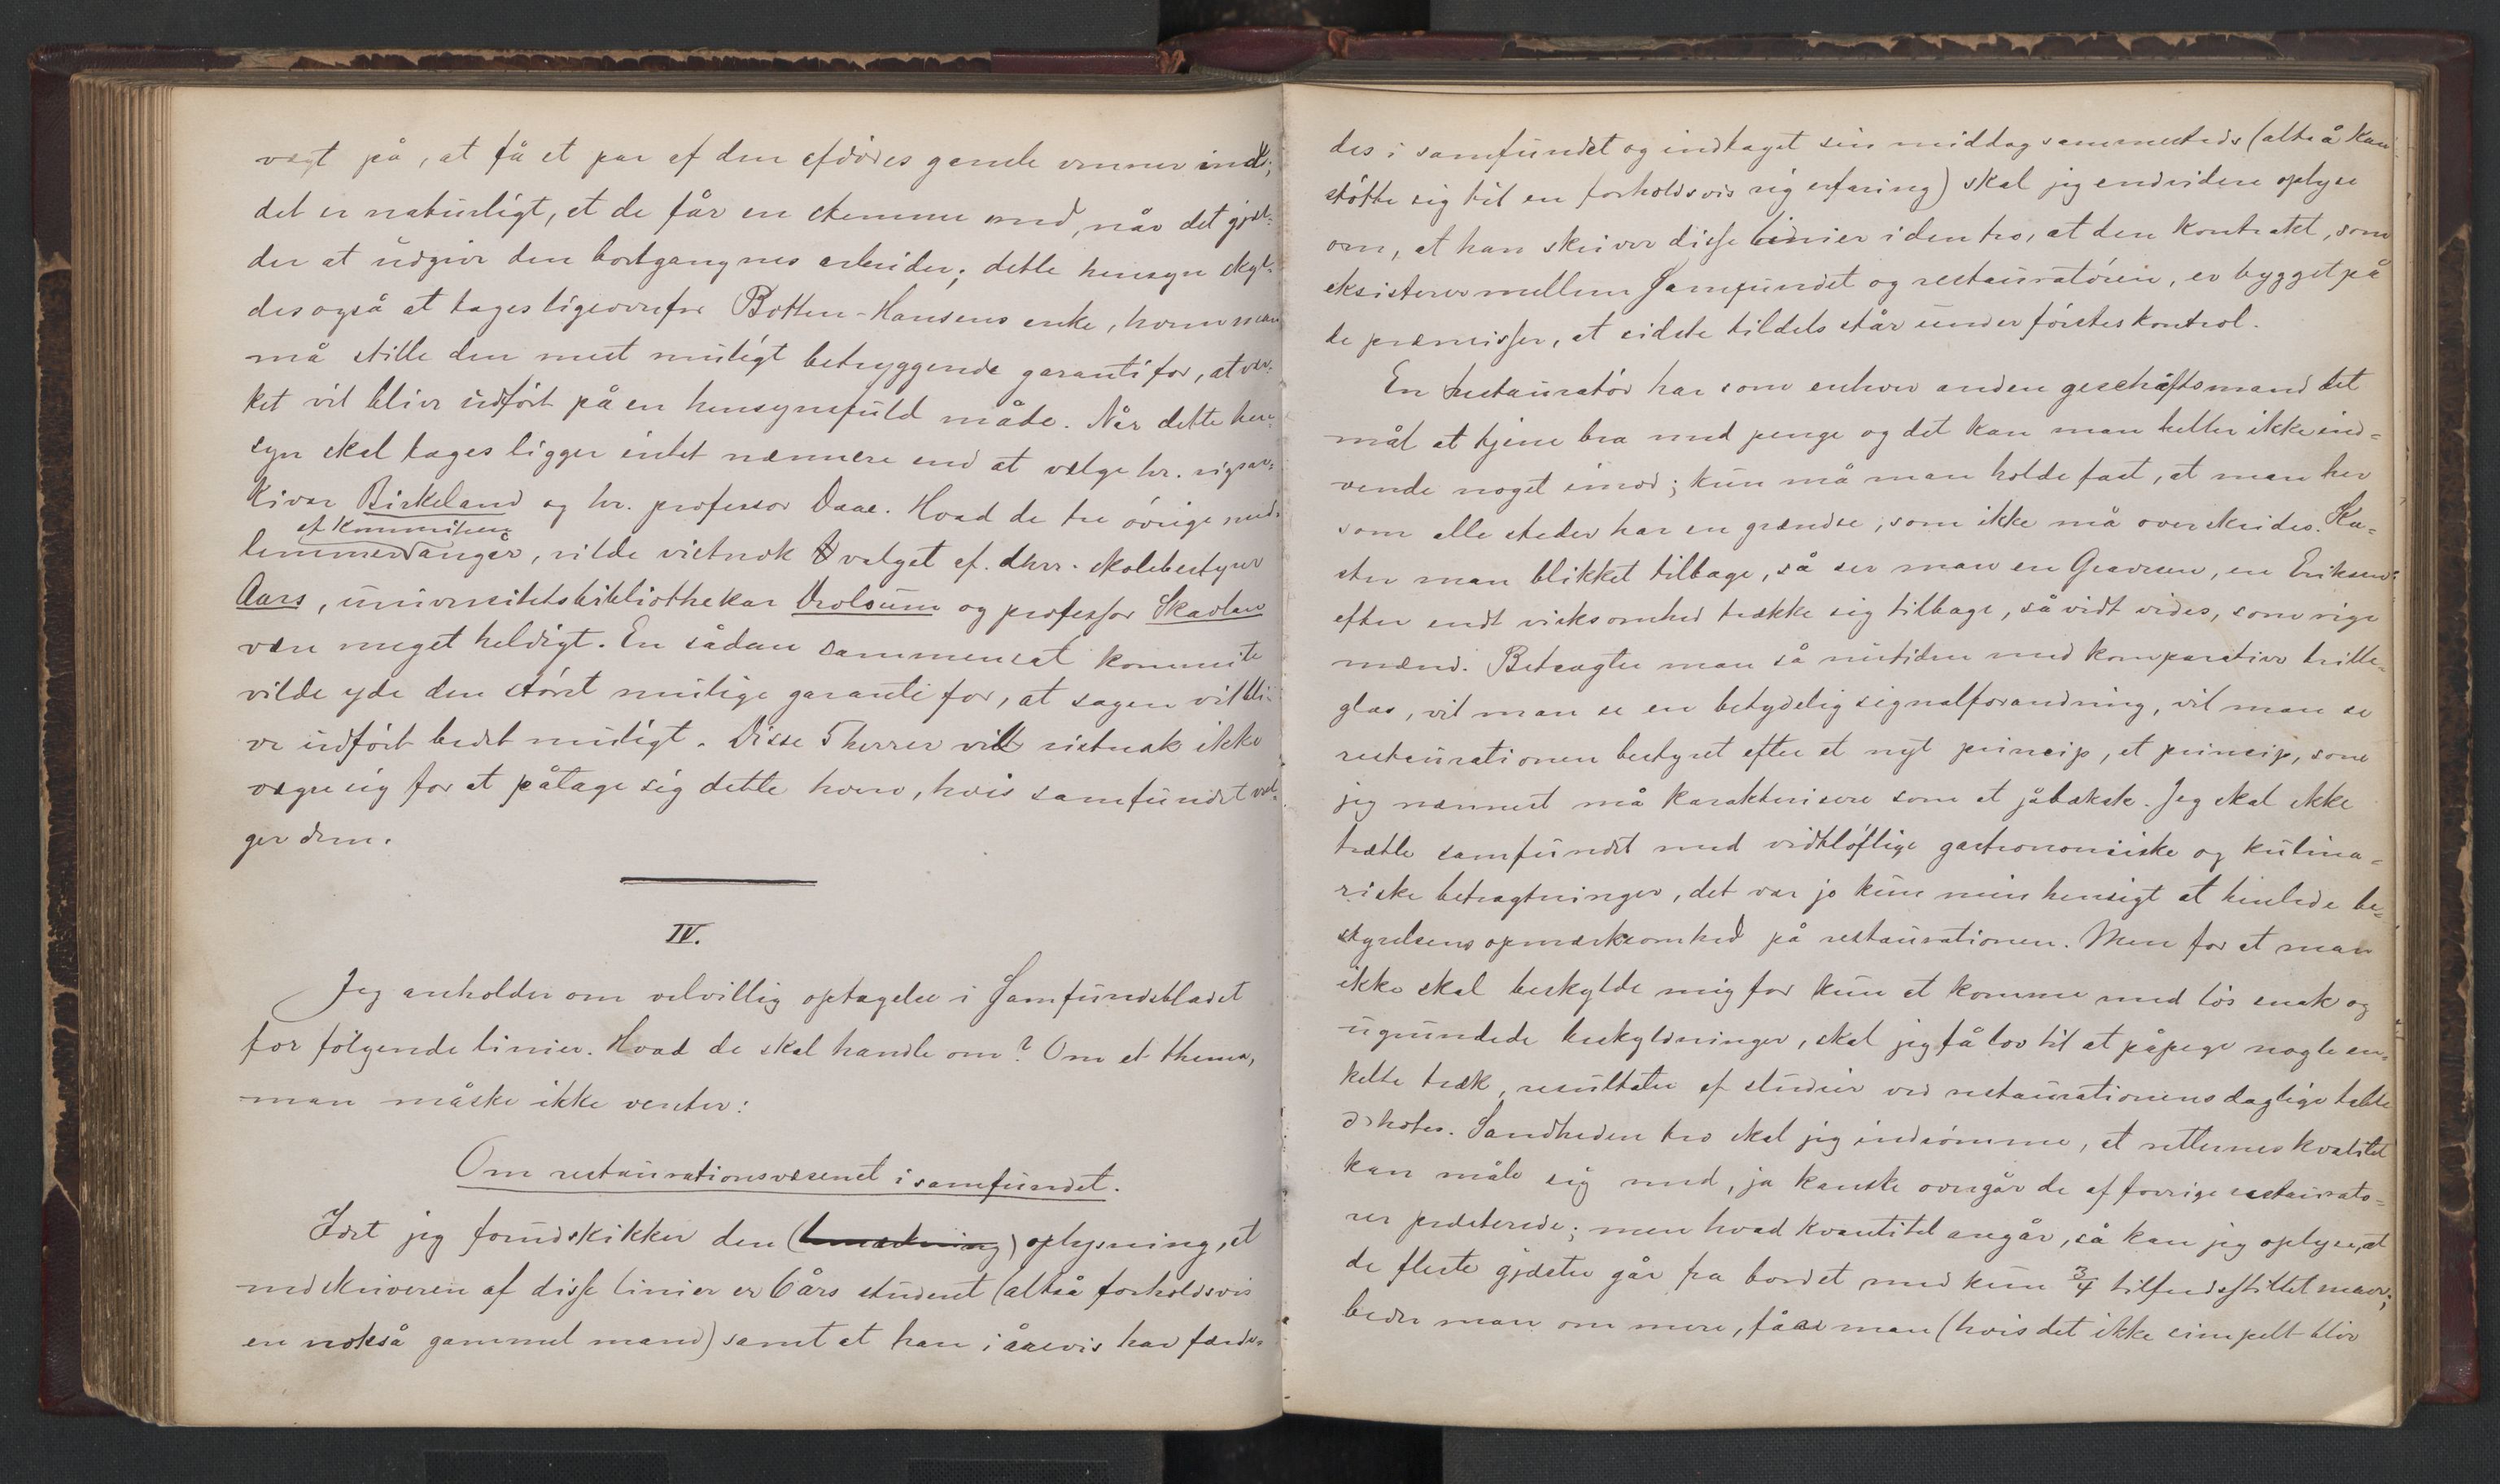 vægt på, at få et par af den afdödes gamle venner ind;
det er naturligt, at de får en stemme med, når det gjæl-
der at udgive den bortgangnes arbeider; dette hensyn skyl-
des også at tages ligeoverfor Botten-Hansens enke, hvem man
må stille den mest muligt betryggende garanti for, at vær-
ket vil blive udfört på en hensynsfuld måde. Når dette hen-
syn skal tages ligger intet nærmere end at vælge hr. rigsar-
kivar Birkeland og hr. professor Daae. Hvad de tre övrige med-
af kommiteen
lemmer angår, vilde vistnok valget af dhrr. skolebestyrer
Aars, universitetsbibliothekar Drolsum og professor Skavlan
være meget heldigt. En sådan sammensat kommite
vilde yde den störst mulige garanti for, at sagen vil bli-
ve udfört bedst muligt. Disse 5 herrer vill vistnok ikke
vægre sig for at påtage sig dette hverv, hvis samfundet væl-
ger dem.
IV.
Jeg anholder om velvillig optagelse i Samfundsbladet
for fölgende linier. Hvad de skal handle om? Om et thema,
man måske ikke venter:
Om restaurationsvæsenet i samfundet.
Idet jeg forudskikker den (bemærkning) oplysning, at
nedskriveren af disse linier er 6 års student (altså forholdsvis
en nokså gammel mand) samt at han i årevis har færde-
des i samfundet og indtaget sin middag sammesteds (altså kan
stötte sig til en forholdsvis rig erfaring) skal jeg endvidere oplyse
om, at han skriver disse linier i den tro, at den kontrakt, som
eksisterer mellem Samfundet og restauratören, er bygget på
de præmisser, at sidste tildels står under förstes kontrol.
En restauratör har som enhver anden geschäftsmand det
mål at tjene bra med penge og det kan man heller ikke ind-
vende noget imod; kun må man holde fast, at man her
som alle steder har en grændse, som ikke må overskrides. Ka-
ster man blikket tilbage, så ser man en Gravesen, en Eriksen
efter endt virksomhed trække sig tilbage, såvidt vides, som rige
mænd. Betragter man så nutiden med komparative brille-
glas, vil man se en betydelig signalforandring, vil man se
restaurationen bestyret efter et nyt princip, et princip, som
jeg nærmest må karakterisere som et jåbakak. Jeg skal ikke
trætte samfundet med vidtlöftige gastronomiske og kulina-
riske betragtninger, det var jo kun min hensigt at henlede be-
styrelsens opmærksomhed på restaurationen. Men for at man
ikke skal beskylde mig for kun at komme med lös snak og
ugrundede beskyldninger, skal jeg få lov til at påpege nogle en-
kelte træk, resultater af studier ved restaurationens daglige table
d'hotes. Sandheden tro skal jeg indrömme, at retternes kvalitet
kan måle sig med, ja kanske overgår de af forrige restauratö-
rer præsterede; men hvad kvantitet angår, så kan jeg oplyse, at
de fleste gjæster går fra bordet med kun 3/4 tilfredsstillet mave;
beder man om mere, får man (hvis det ikke simpelt blir